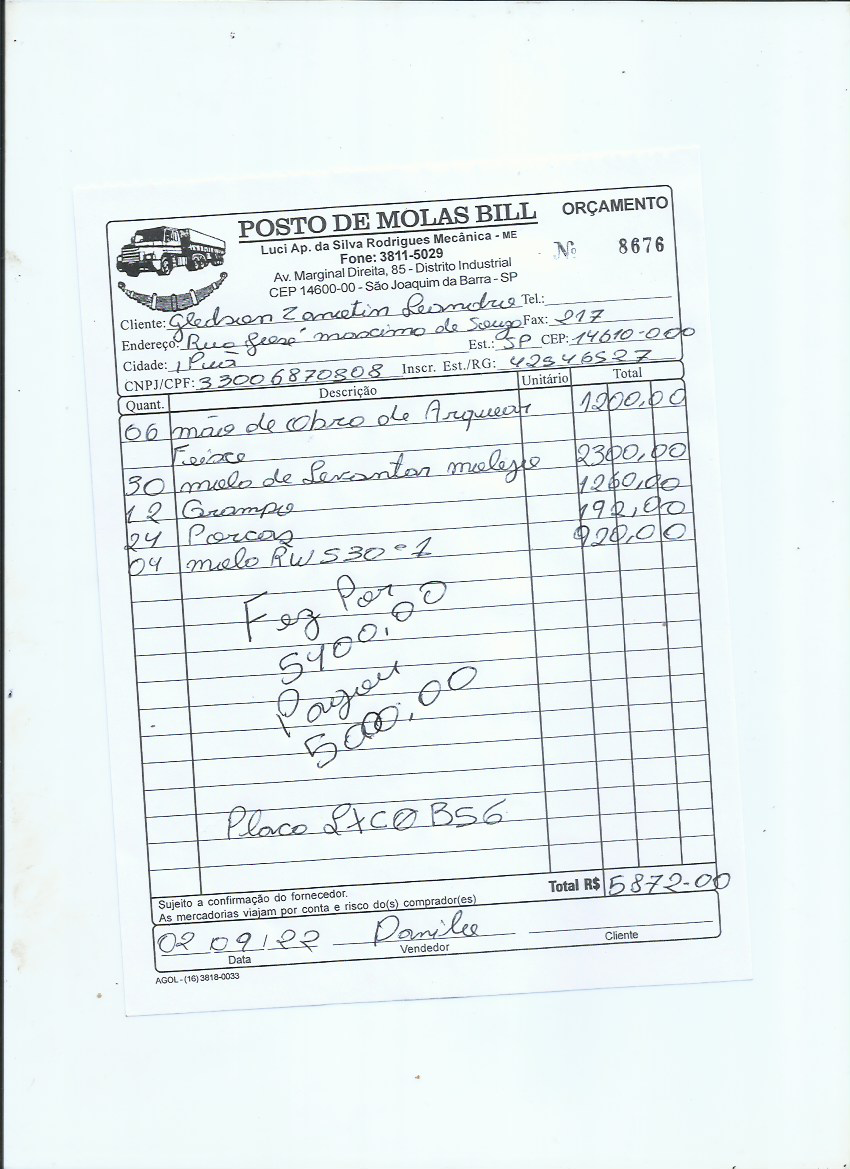 POSTO DE MOLAS BILL
ORÇAMENTO
Luci Ap. da Silva Rodrigues Mecânica - ME
Nº 8676
Fone: 3811-5029
Av. Marginal Direita, 85 - Distrito Industrial
CEP 14600-00 - São Joaquim da Barra - SP
Cliente: Gledson Zancetin Leandro Tel.:
Endereço: Rua José maximo de Souza Fax: 217
Cidade: Ipuã Est.: SP CEP: 14610-000
CNPJ/CPF: 33006870808 Inscr. Est./RG: 42546527
Quant. Descrição Unitário Total
06 mão de obra de Arquear 1200,00
Feixe
30 mola de Levantar molejo 2300,00
12 Grampo 1260,00
24 Porcas 192,00
04 mola RW 530-1 920,00
Fez Por
5400,00
Pagou
5000,00
Placa LXC0B56
Total R$ 5872-00
Sujeito a confirmação do fornecedor.
As mercadorias viajam por conta e risco do(s) comprador(es)
02 09/22 Danilo
Data Vendedor Cliente
AGOL - (16) 3818-0033